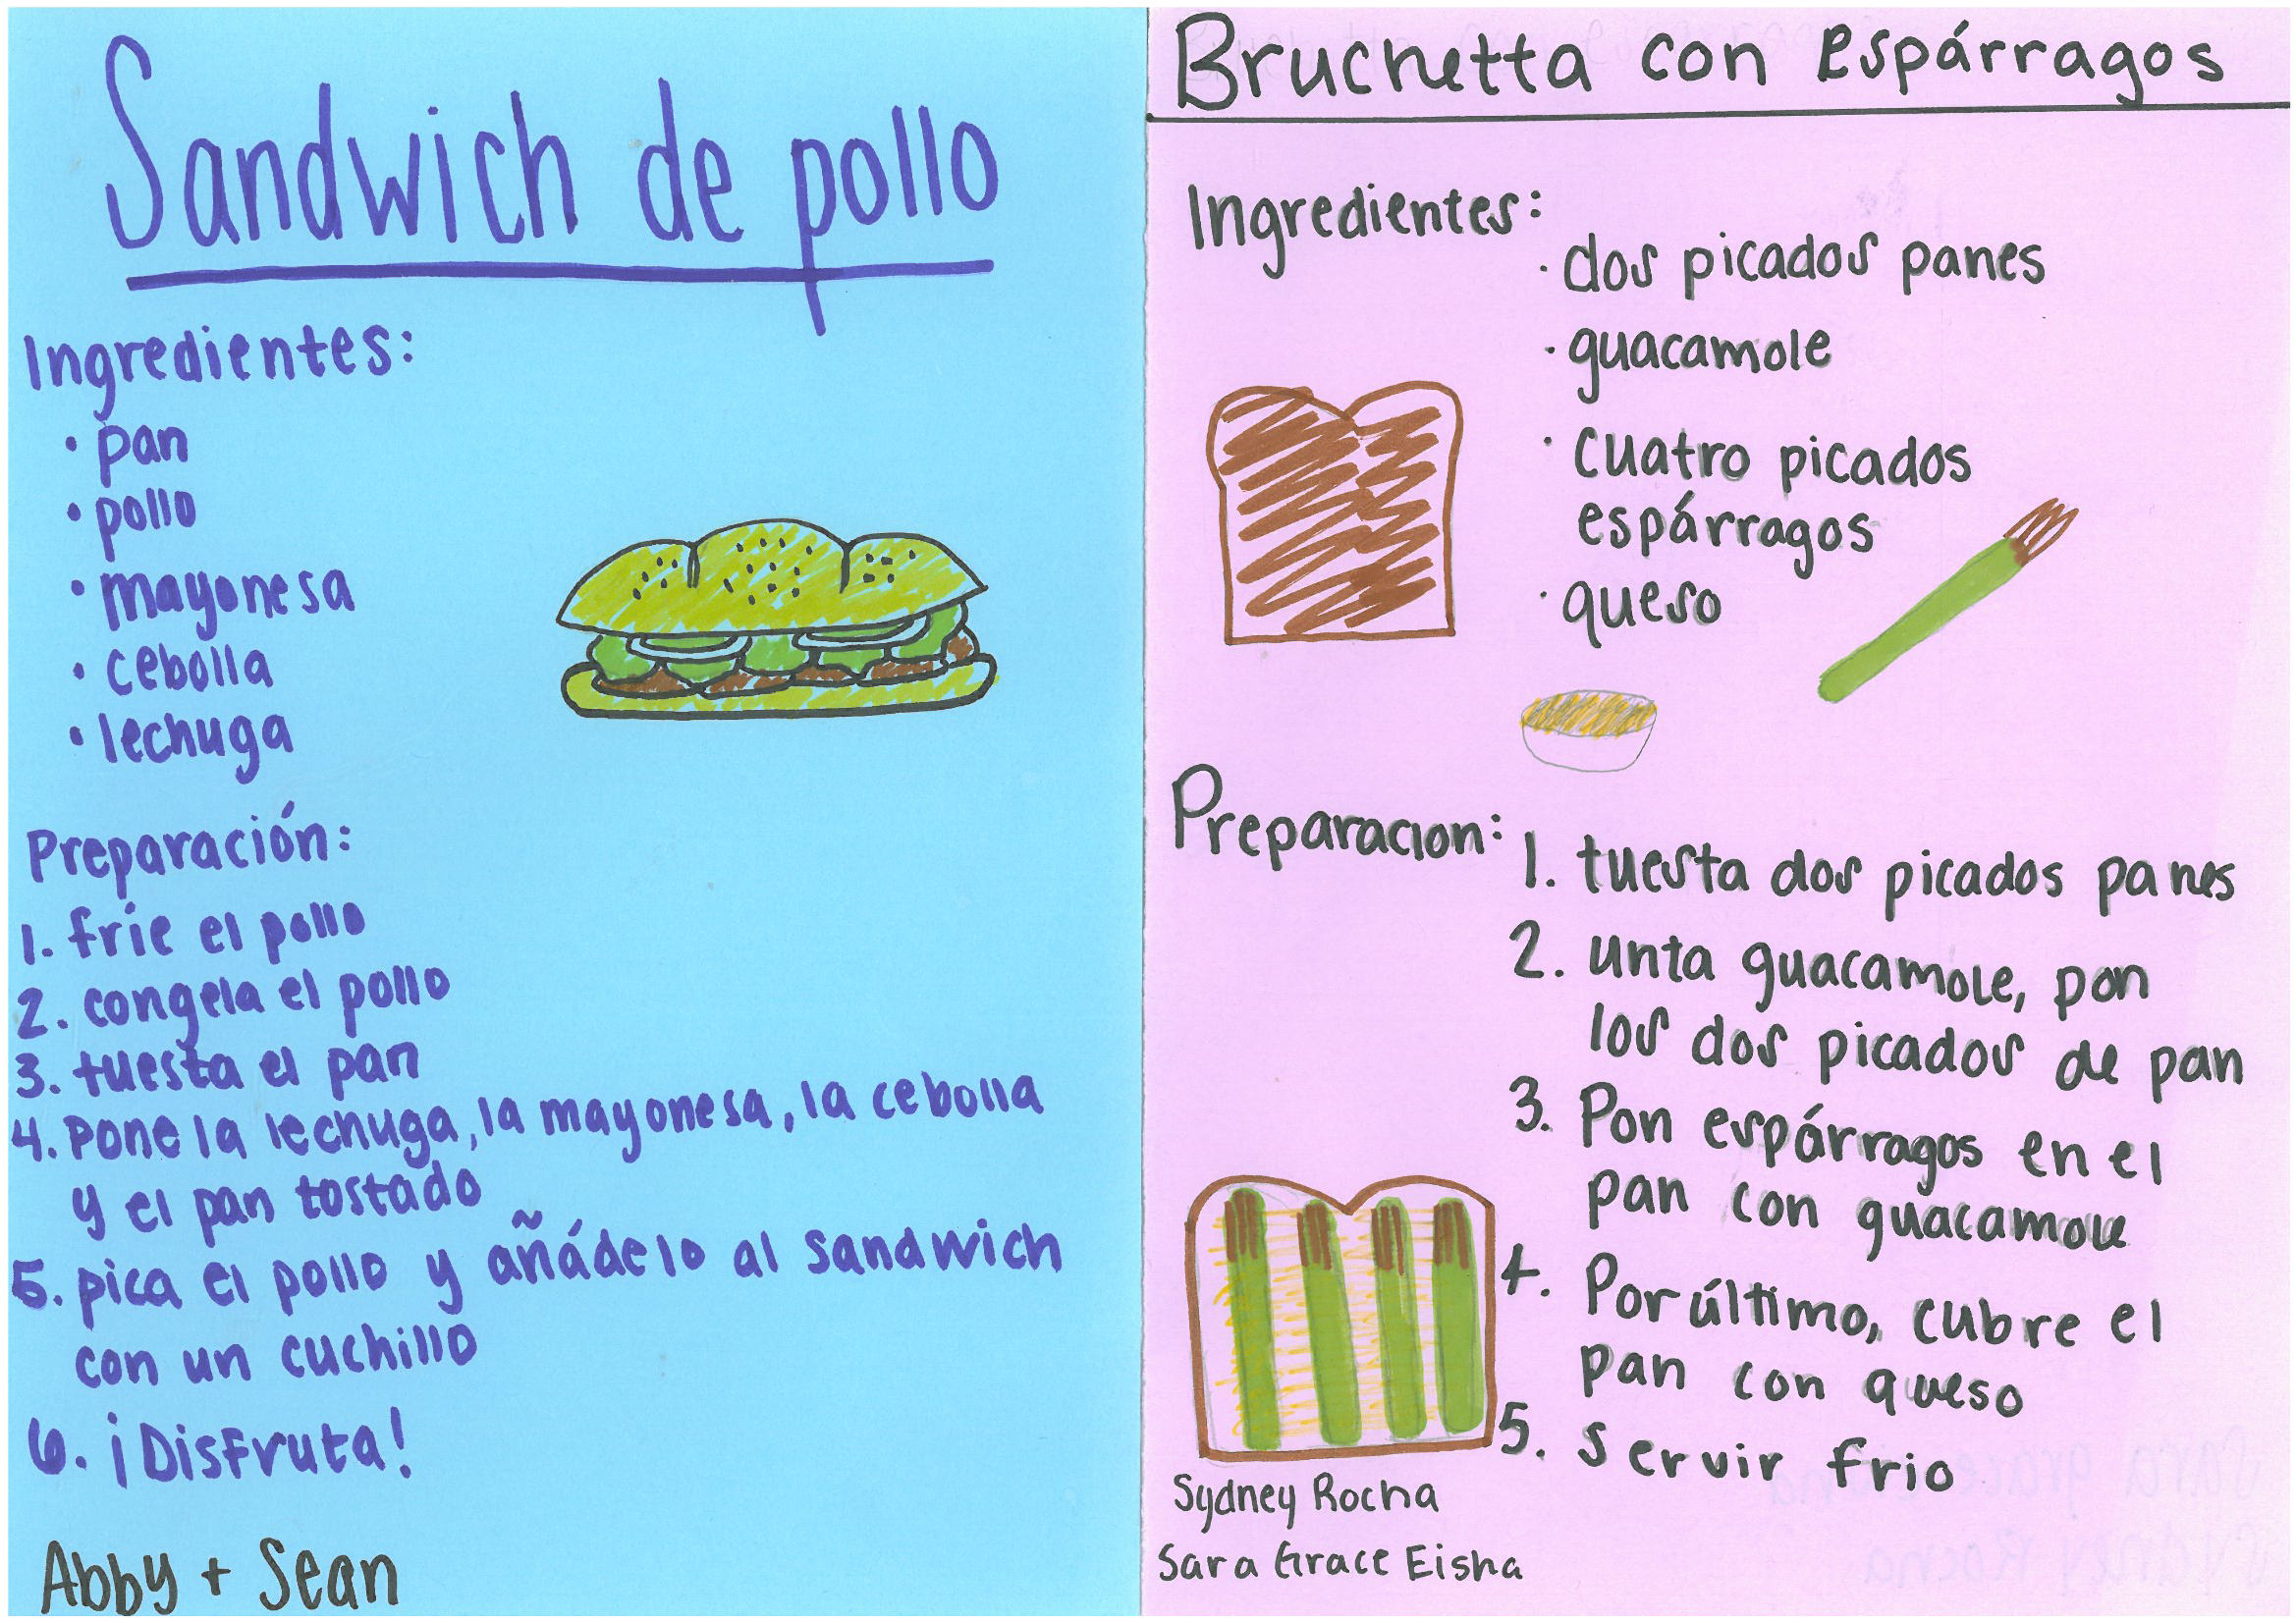 Sandwich de pollo
Ingredientes:
• pan
• pollo
• mayonesa
• cebolla
• lechuga
Preparación:
1. fríe el pollo
2. congela el pollo
3. tuesta el pan
4. Pone la lechuga, la mayonesa, la cebolla
y el pan tostado
5. pica el pollo y añádelo al sandwich
con un cuchillo
6. ¡Disfruta!
Abby + Sean
Bruchetta con Espárragos
Ingredientes:
· dos picados panes
· guacamole
· cuatro picados
espárragos
· queso
Preparacion:
1. tuesta dos picados panes
2. unta guacamole, pon
los dos picados de pan
3. Pon espárragos en el
pan con guacamole
4. Por último, cubre el
pan con queso
5. servir frio
Sydney Rocha
Sara Grace Eisha